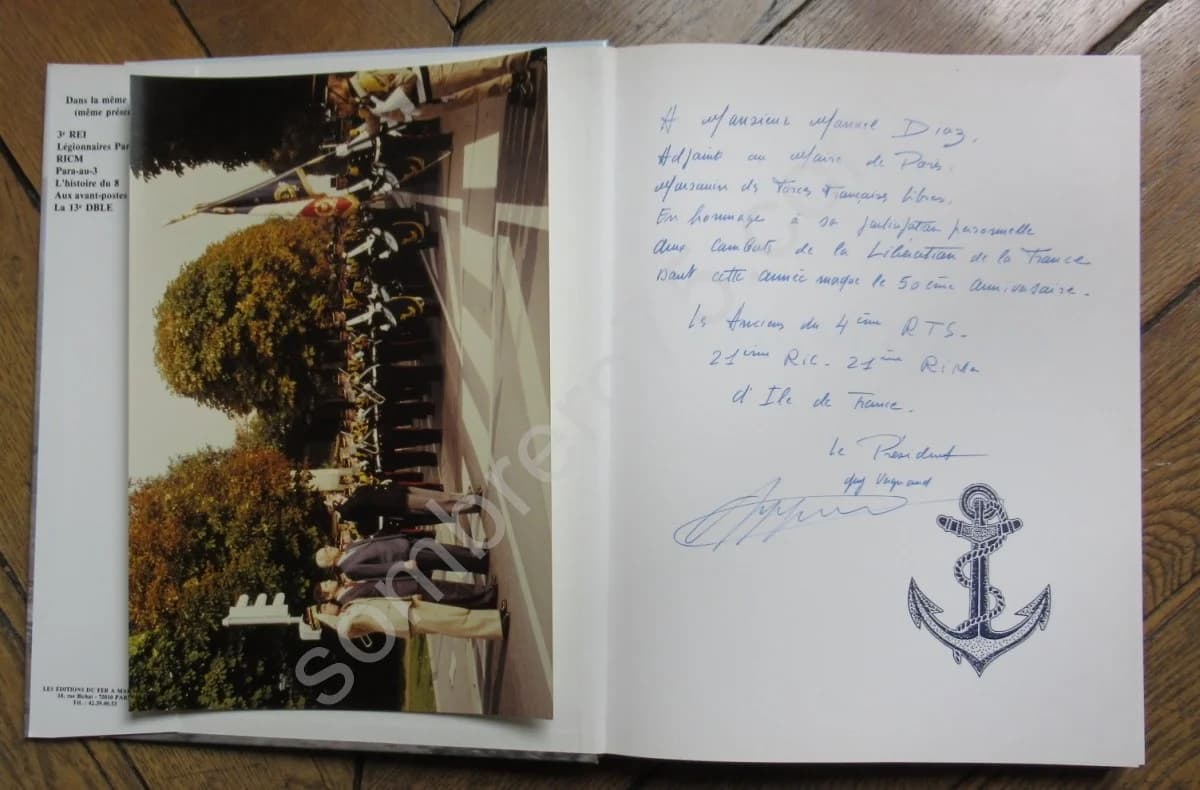 Dans la même
(même prése
3e REI
Légionnaires Par
RICM
Para-au-3
L'histoire du 8
Aux avant-postes
La 13e DBLE
LES ÉDITIONS DU FER A MA
18, rue Bichat - 75010 PAR
Tél. : 42.39.40.53
A Monsieur Manuel Diaz,
Adjoint au Maire de Paris.
des Forces Françaises libres.
En hommage à sa participation personnelle
aux combats de la Libération de la France
Dont cette année marque le 50ème anniversaire.
Les Anciens du 4ème RTS.
21ème RIC - 21ème RIMa
d'Ile de France.
Le Président
sombrero